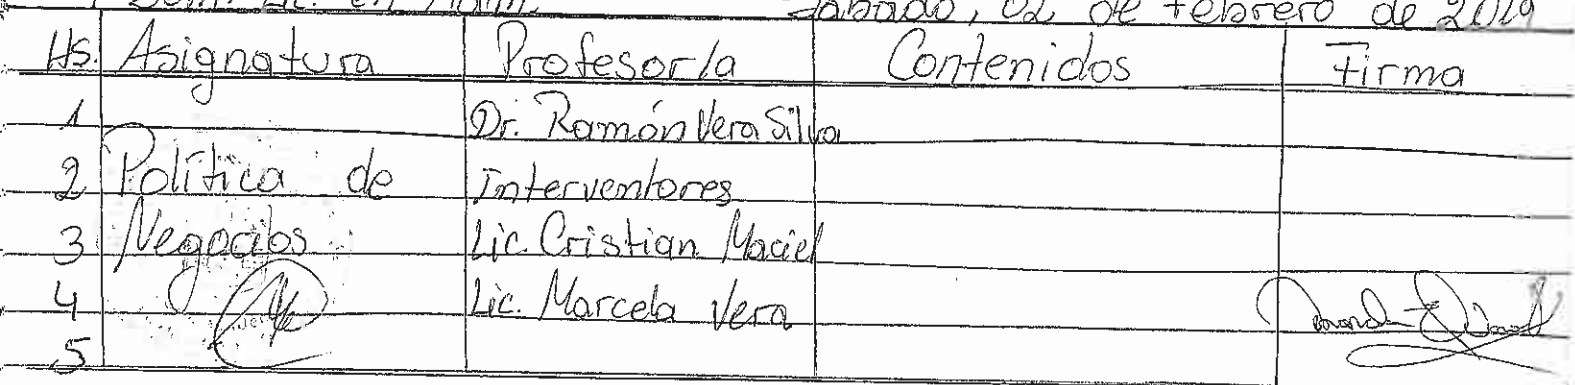 Sábado, 02 de febrero de 2019
Hs. Asignatura Profesor/a Contenidos Firma
1 Dr. Ramón Vera Silva
2 Política de Interventores
3 Negocios Lic. Cristian Maciel
4 Lic. Marcela Vera
5